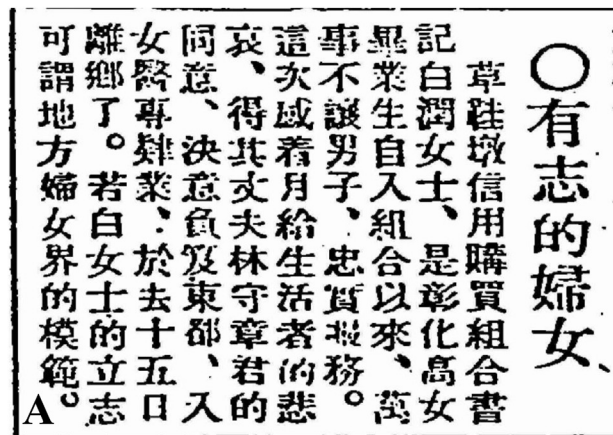 ○有志的婦女、
草鞋墩信用購買組合書
記白潤女士、是彰化高女
畢業生自入組合以來、萬
事不讓男子、忠實服務。
這次感着月給生活者的悲
哀、得其丈夫林守章君的
同意、決意負笈東都、入
女醫專肄業、於去十五日
離鄉了。若白女士的立志
可謂地方婦女界的模範。
A